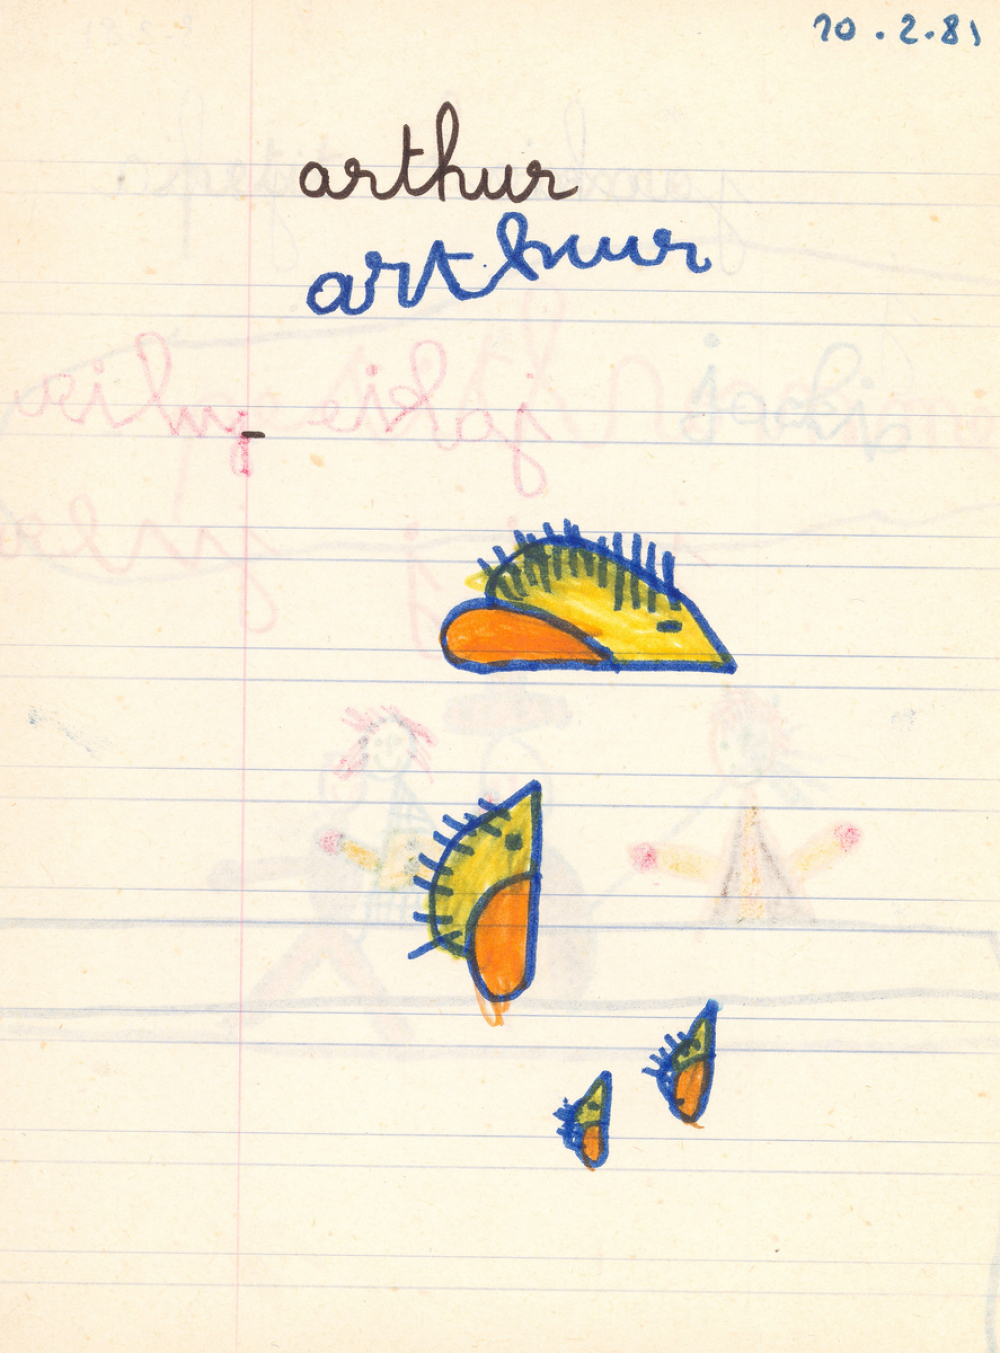 10.2.81
arthur
arthur